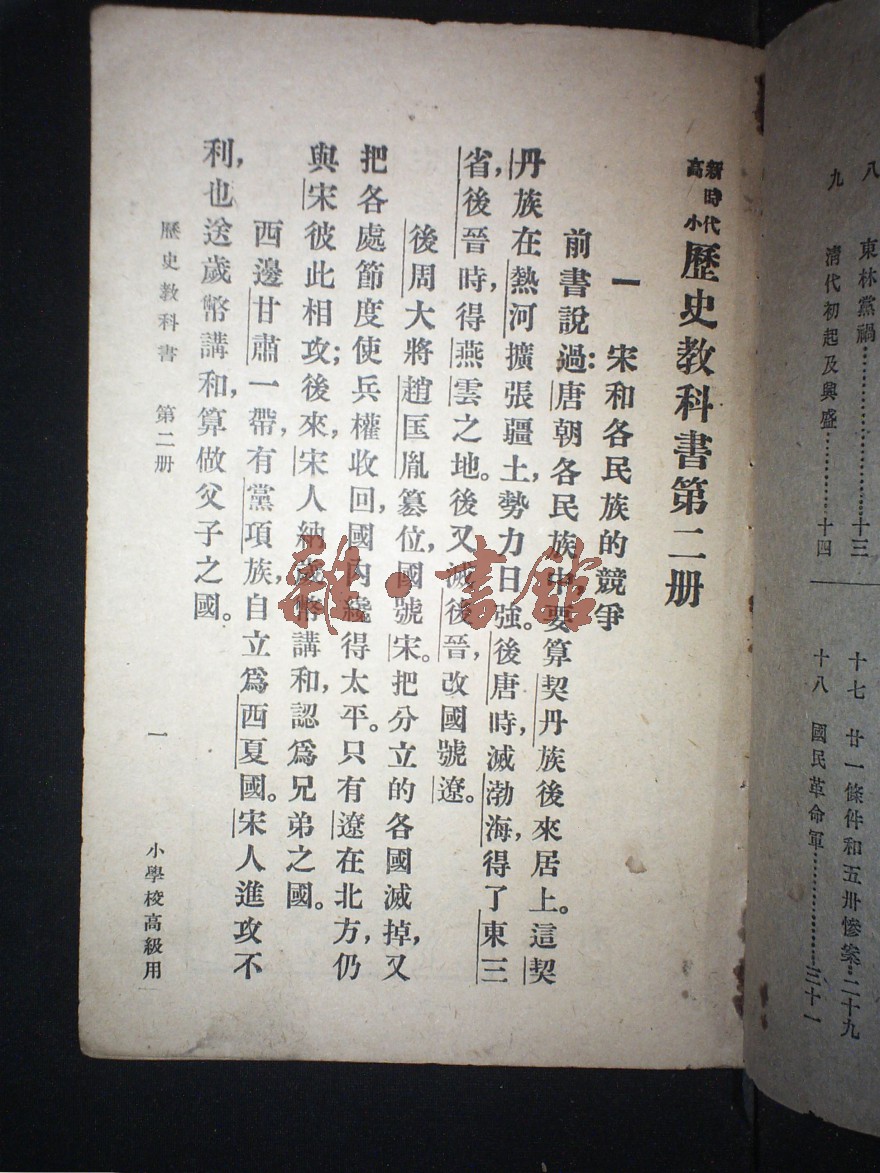 新時代
高小
歷史教科書第二册
一 宋和各民族的競爭
前書說過:唐朝各民族中,要算契丹族後來居上。這契
丹族在熱河擴張疆土,勢力日強。後唐時,滅渤海,得了東三
省,後晉時,得燕雲之地。後又滅後晉,改國號遼。
後周大將趙匡胤篡位,國號宋。把分立的各國滅掉,又
把各處節度使兵權收回,國內纔得太平。只有遼在北方,仍
與宋彼此相攻;後來,宋人納歲幣講和,認爲兄弟之國。
西邊甘肅一帶,有黨項族,自立爲西夏國。宋人進攻不
利,也送歲幣講和,算做父子之國。
歷史教科書 第二册 一 小學校高級用
八 東林黨禍 十三
九 清代初起及興盛 十四
十七 廿一條件和五卅慘案 二十九
十八 國民革命軍 三十一
雜·書館